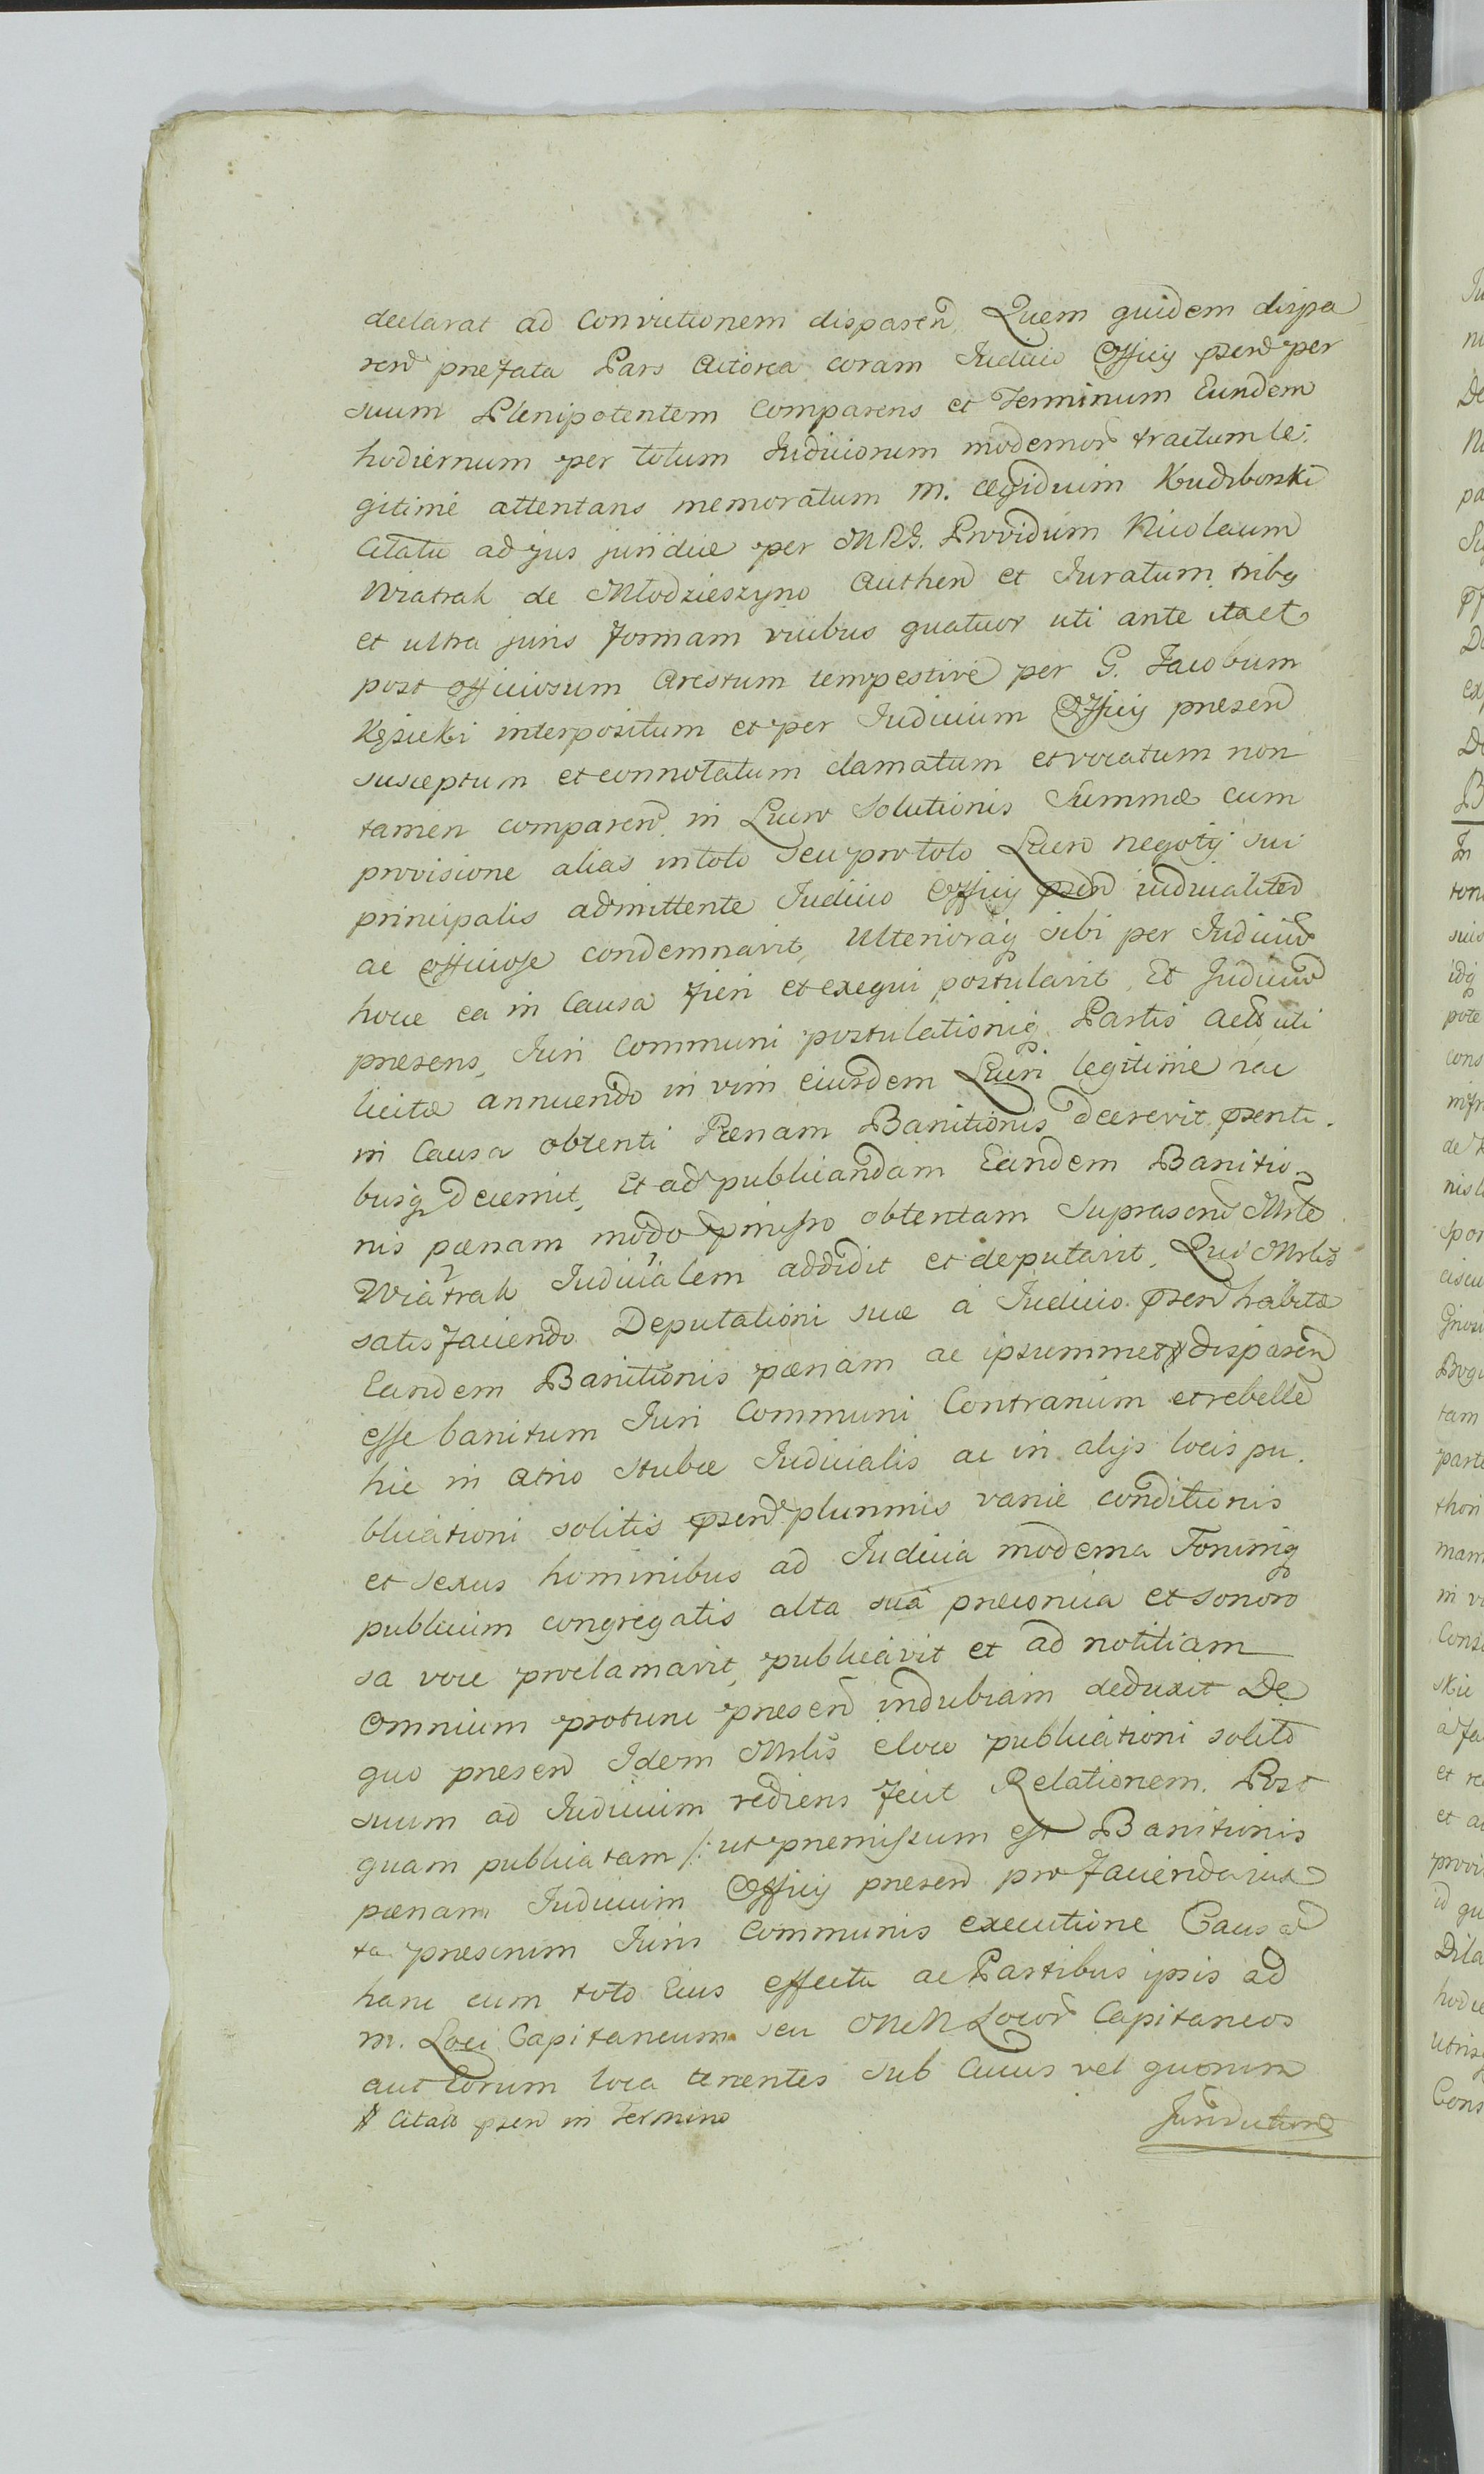 declarat ad convictionem disparen. Quem quidem dispa
ren prefata Pars Actorea coram Iudicio Officij psen per
suum Plenipotentem comparens et Terminum Eundem
hodiernum per totum Iudiciorum modernor tractum le.
gitime attentans memoratum M. Aegidium
Citatu ad jus juridice per MRG. Providum Nicolaum
Wiatrak de Młodzieszyno Authen et Iuratum tribq
et ultra juris formam vicibus quatuor uti ante ita et
post officiosum Arestum tempestive per G. Jacobum
Kęsicki interpositum et per Iudicium Officij presen
susceptum et connotatum clamatum et vocatum non
tamen comparen. in Lucro Solutionis Summæ cum
provisione alias in toto seu pro toto Lucro negotij sui
principalis admittente Iudicio Officij psen iudicialiter
ac officiose condemnavit, Ulterioraq sibi per Iudiciu
hocce ea in Causa fieri et exequi postulavit, Et Judiciu
presens, Juri Communi postulationiq Partis Act uti
licitæ annuendo in vim eiusdem Lucri legitime hac
in Causa obtenti Pænam Banitionis decrevit psenti.
busq decernit, Et ad publicandam Eandem Banitio-
nis pænam modo pmisso obtentam suprascri Mrle
Wiatrak Iudicialem addidit et deputavit, Qui Mrlis
satisfaciendo Deputationi suæ a Iudicio psen habitæ
Eandem Banitionis pænam ac ipsummet # disparen
esse banitum Juri Communi Contrarium et rebelle
hic in Atrio Stubæ Iudicialis ac in alijs locis pu.
blicationi solitis psen plurimis variæ conditionis
et sexus hominibus ad Iudicia moderna Forumq
publicum congregatis alta suâ præconica et sonoro
sa voce proclamavit, publicavit et ad notitiam
omnium protunc presen indubiam deduxit De
quo presen Idem Mrlis eloco publicationi solito
suum ad Iudicium rediens fecit Relationem. Post
quam publicatam /: ut premissum est Banitionis
pænam Iudicium Officij presen pro facienda iux
ta prescrium Juris Communis executione Causā
hanc cum toto Eius effectu ac Partibus ipsis ad
M. Loci Capitaneum seu MM Locor Capitaneos
aut Eorum loca tenentes sub Cuius vel quorum
# Citato psen in Termino
Jurisdictione